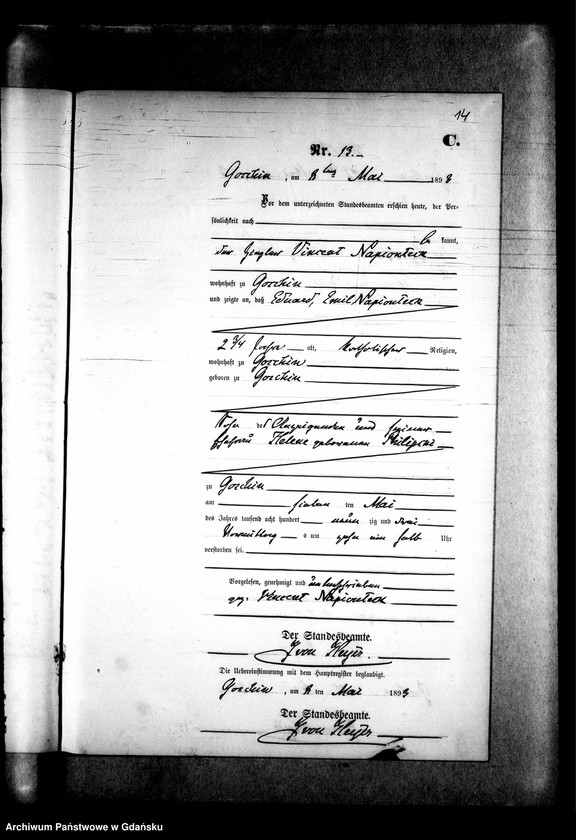 14
C.
Nr. 13.
Goschin, am 8ten Mai 1893
Vor dem unterzeichneten Standesbeamten erschien heute, der Per-
sönlichkeit nach
be kannt,
der Vincent Napionteck
wohnhaft zu Goschin
und zeigte an, daß Eduard, Emil Napionteck
2 3/4 Jahre alt, katholischer Religion,
wohnhaft zu Goschin
geboren zu Goschin
Sohn des Anzeigenden und seiner
Ehefrau Helene geborenen
zu Goschin
am sieben ten Mai
des Jahres tausend acht hundert neun zig und drei
Vormittag s um zehn ein halb Uhr
verstorben sei.
Vorgelesen, genehmigt und unterschrieben
gez. Vincent Napionteck
Der Standesbeamte.
von Heyer.
Die Uebereinstimmung mit dem Hauptregister beglaubigt.
Goschin, am 8 ten Mai 1893
Der Standesbeamte.
von Heyer
Archiwum Państwowe w Gdańsku